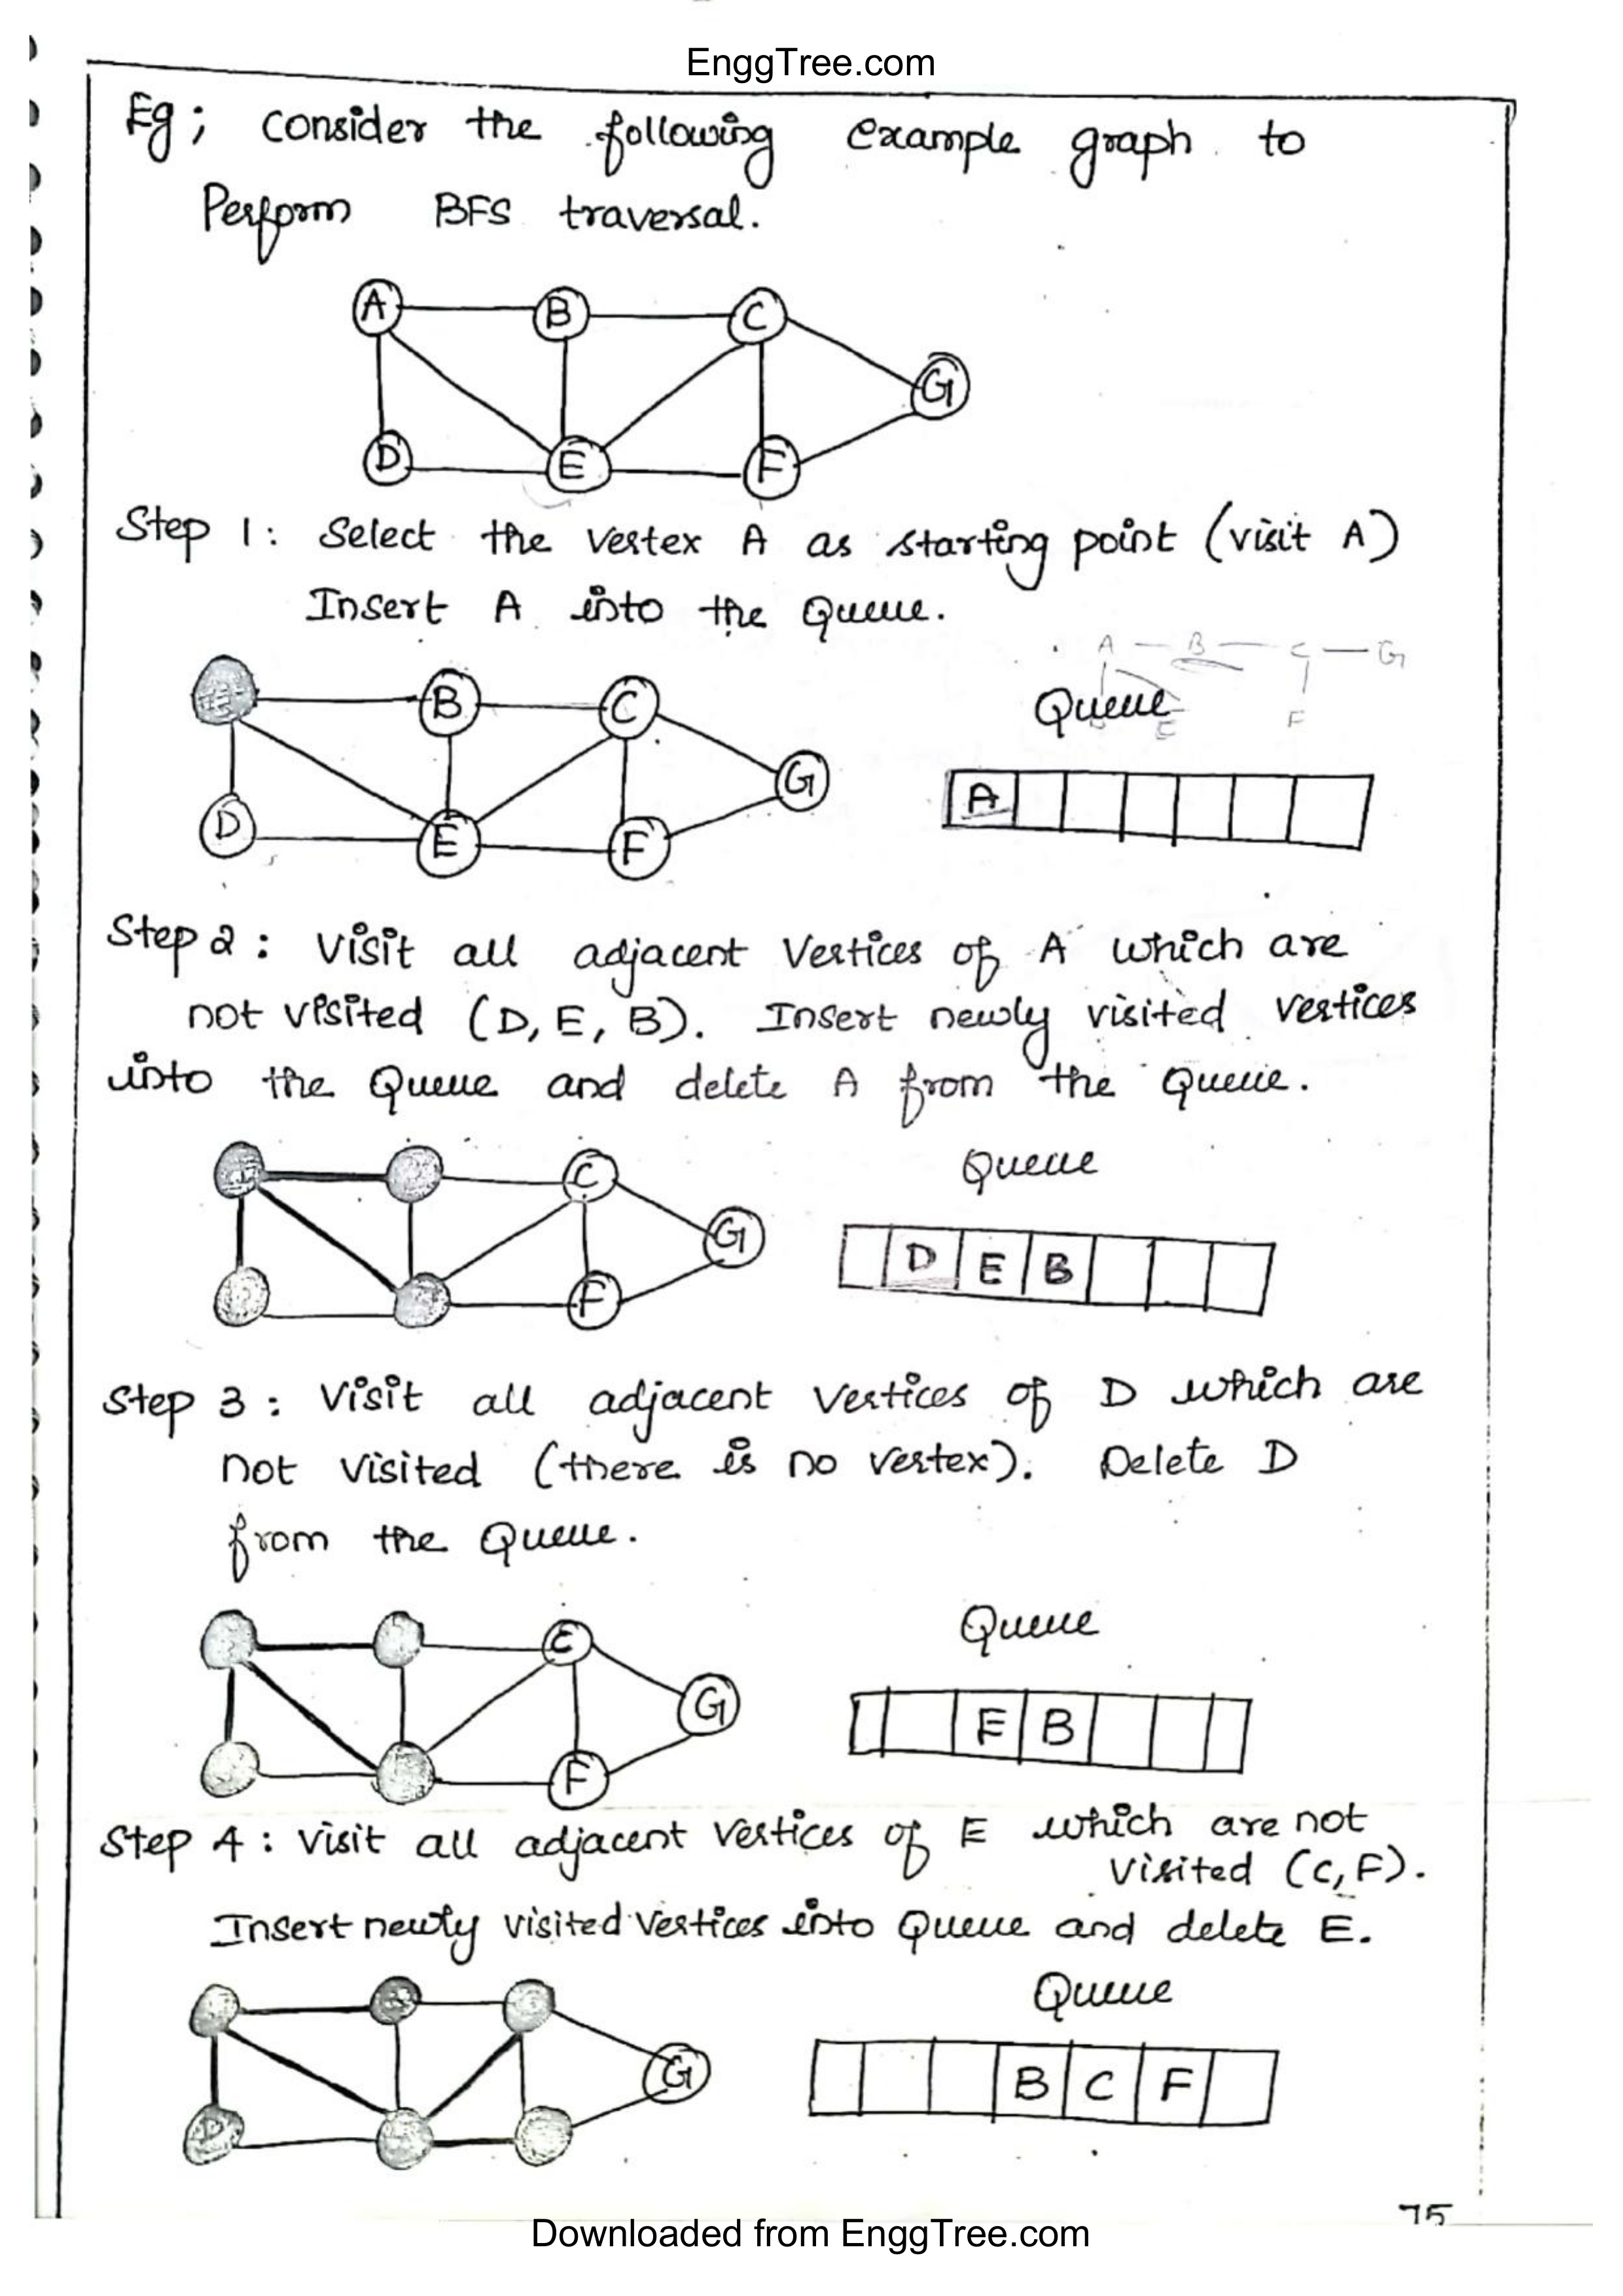 EnggTree.com
Eg; Consider the following example graph to
Perform BFS traversal.
A B C
G
D E F
Step 1: Select the vertex A as starting point (visit A)
Insert A into the Queue.
A B C G
E F
Queue
B C
G
A
D E F
Step 2: Visit all adjacent vertices of A which are
not visited (D, E, B). Insert newly visited vertices
into the Queue and delete A from the Queue.
Queue
C
G
D E B
F
Step 3: Visit all adjacent vertices of D which are
not visited (there is no vertex). Delete D
from the Queue.
Queue
G
B
F
Step 4: Visit all adjacent vertices of E which are not
visited (C, F).
Insert newly visited vertices into Queue and delete E.
Queue
G
B C F
D
75
Downloaded from EnggTree.com